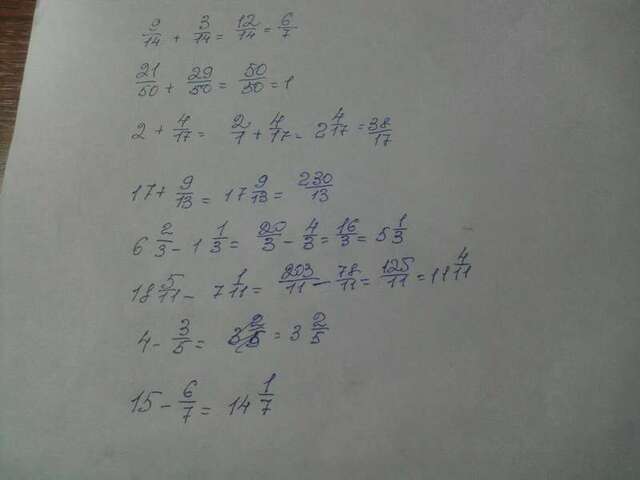 9/14 + 3/14 = 12/14 = 6/7
21/50 + 29/50 = 50/50 = 1
2 + 4/17 = 2/1 + 4/17 = 2 4/17 = 38/17
17 + 9/13 = 17 9/13 = 230/13
6 2/3 - 1 1/3 = 20/3 - 4/3 = 16/3 = 5 1/3
18 5/11 - 7 1/11 = 203/11 - 78/11 = 125/11 = 11 4/11
4 - 3/5 = = 3 2/5
15 - 6/7 = 14 1/7